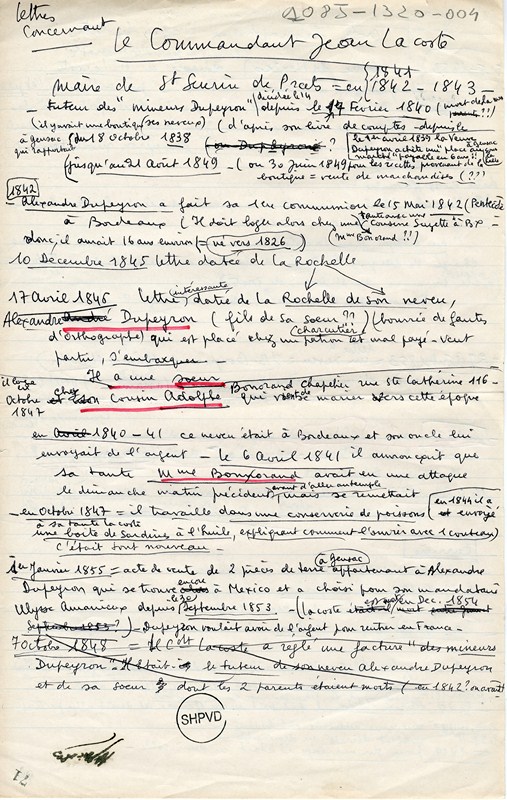 lettres
concernant
1085-1320-004
le Commandant Jean Lacoste
1841
Maire de St Seurin de Prats = en 1842 - 1843 -
- tuteur des "mineurs Dupeyron" depuis le 17 Février 1840
(il y avait une boutique ses neveux) (d'après son livre de comptes - depuis le
à Gensac du 18 octobre 1838
qui rapportait
(en avril 1839 la Veuve
Dupeyron achète une place au
jusqu'au 21 Août 1849 - (ou 30 Juin 1849 pour les recettes provenant de la
boutique = vente de marchandises (??)
1842
- Alexandre Dupeyron a fait sa 1ere communion le 15 Mai 1842 (Pentecôte
à Bordeaux (Il doit loger alors chez une Cousine Suzette à Bx
tante avec une
donc il aurait 16 ans environ = né vers 1826) (Mme Bonorand !!)
10 Décembre 1845 lettre datée de la Rochelle
17 Avril 1846 lettre intéressante, datée de la Rochelle de son neveu,
Alexandre Dupeyron (fils de sa soeur ??) (bourrée de fautes
d'orthographe) qui est placé chez un patron (charcutier) et mal payé - veut
partir, s'embarquer -
Il a une soeur
il loge
octobre chez son Cousin Adolphe Bonorand chapelier rue Ste Catherine 116 -
1847 qui vient de se marier vers cette époque
en 1840 - 41 ce neveu était à Bordeaux et son oncle lui
envoyait de l'argent - le 6 Avril 1841 il annonçait que
sa tante Mme Bonnorand avait eu une attaque
le dimanche matin précédent, avant d'aller au temple mais se remettait
- en octobre 1847 = il travaille dans une conserverie de poissons (en 1844 il a
envoyé
à sa tante Lacoste
une boîte de Sardines à l'huile, expliquant comment l'ouvrir avec 1 couteau)
c'était tout nouveau -
1er Janvier 1855 = acte de vente de 2 pièces de terre à Gensac appartenant à Alexandre
Dupeyron qui se trouve encore à Mexico et a choisi pour son mandataire
Ulysse Amanieux depuis le 20 Septembre 1853 - (Lacoste mort en Dec. 1854
Septembre 1853 ?) Dupeyron voulait avoir de l'argent pour rentrer en France -
7 octobre 1848 = Il Cdt Lacoste a réglé une facture "des mineurs
Dupeyron". Il était le tuteur de son neveu Alexandre Dupeyron
et de sa soeur dont les 2 parents étaient morts (en 1842? ou avant
SHPVD
71